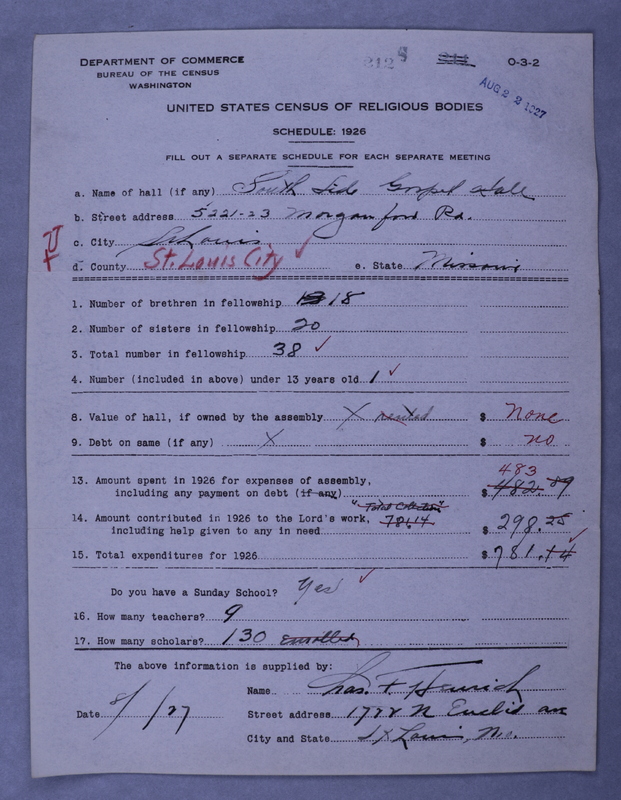 DEPARTMENT OF COMMERCE
BUREAU OF THE CENSUS
WASHINGTON
212 O-3-2
AUG 22 1927
UNITED STATES CENSUS OF RELIGIOUS BODIES
SCHEDULE: 1926
FILL OUT A SEPARATE SCHEDULE FOR EACH SEPARATE MEETING
a. Name of hall (if any) South Side Gospel Hall
b. Street address 5221-23 Morganford Rd.
c. City St Louis
d. County St. Louis City ✓ e. State Missouri
1. Number of brethren in fellowship 18
2. Number of sisters in fellowship 20
3. Total number in fellowship 38 ✓
4. Number (included in above) under 13 years old 1 ✓
8. Value of hall, if owned by the assembly X rented $ None
9. Debt on same (if any) X $ no
483
13. Amount spent in 1926 for expenses of assembly,
including any payment on debt (if any) $ 482.89
14. Amount contributed in 1926 to the Lord's work, 781.14
including help given to any in need $ 298.25
15. Total expenditures for 1926 $ 781.14 ✓
Do you have a Sunday School? Yes ✓
16. How many teachers? 9
17. How many scholars? 130 enrolled
The above information is supplied by:
Name Chas. F.
Date 8/1/27 Street address 1772 N Euclid ave
City and State St Louis, Mo.